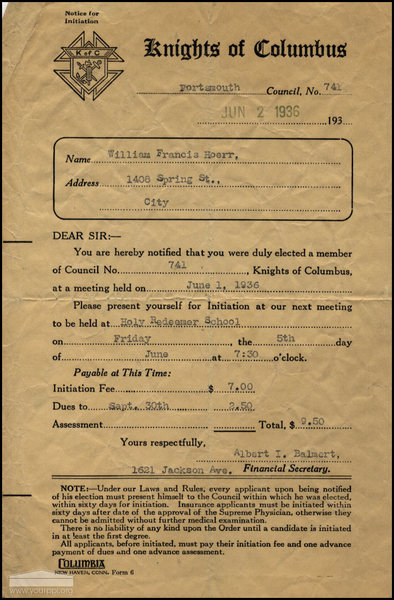 Notice for
Initiation
K of C
Knights of Columbus
Portsmouth Council, No. 741
JUN 2 1936 193
Name William Francis Hoerr,
Address 1408 Spring St.,
City
DEAR SIR:—
You are hereby notified that you were duly elected a member
of Council No. 741, Knights of Columbus,
at a meeting held on June 1, 1936
Please present yourself for Initiation at our next meeting
to be held at Holy Redeemer School
on Friday, the 5th day
of June at 7:30 o'clock.
Payable at This Time:
Initiation Fee $ 7.00
Dues to Sept. 30th 2.50
Assessment Total, $ 9.50
Yours respectfully,
Albert I. Balmert,
1621 Jackson Ave. Financial Secretary.
NOTE:—Under our Laws and Rules, every applicant upon being notified
of his election must present himself to the Council within which he was elected,
within sixty days for initiation. Insurance applicants must be initiated within
sixty days after date of the approval of the Supreme Physician, otherwise they
cannot be admitted without further medical examination.
There is no liability of any kind upon the Order until a candidate is initiated
in at least the first degree.
All applicants, before initiated, must pay their initiation fee and one advance
payment of dues and one advance assessment.
COLUMBIA
NEW HAVEN, CONN. Form 6
www.yourppl.org